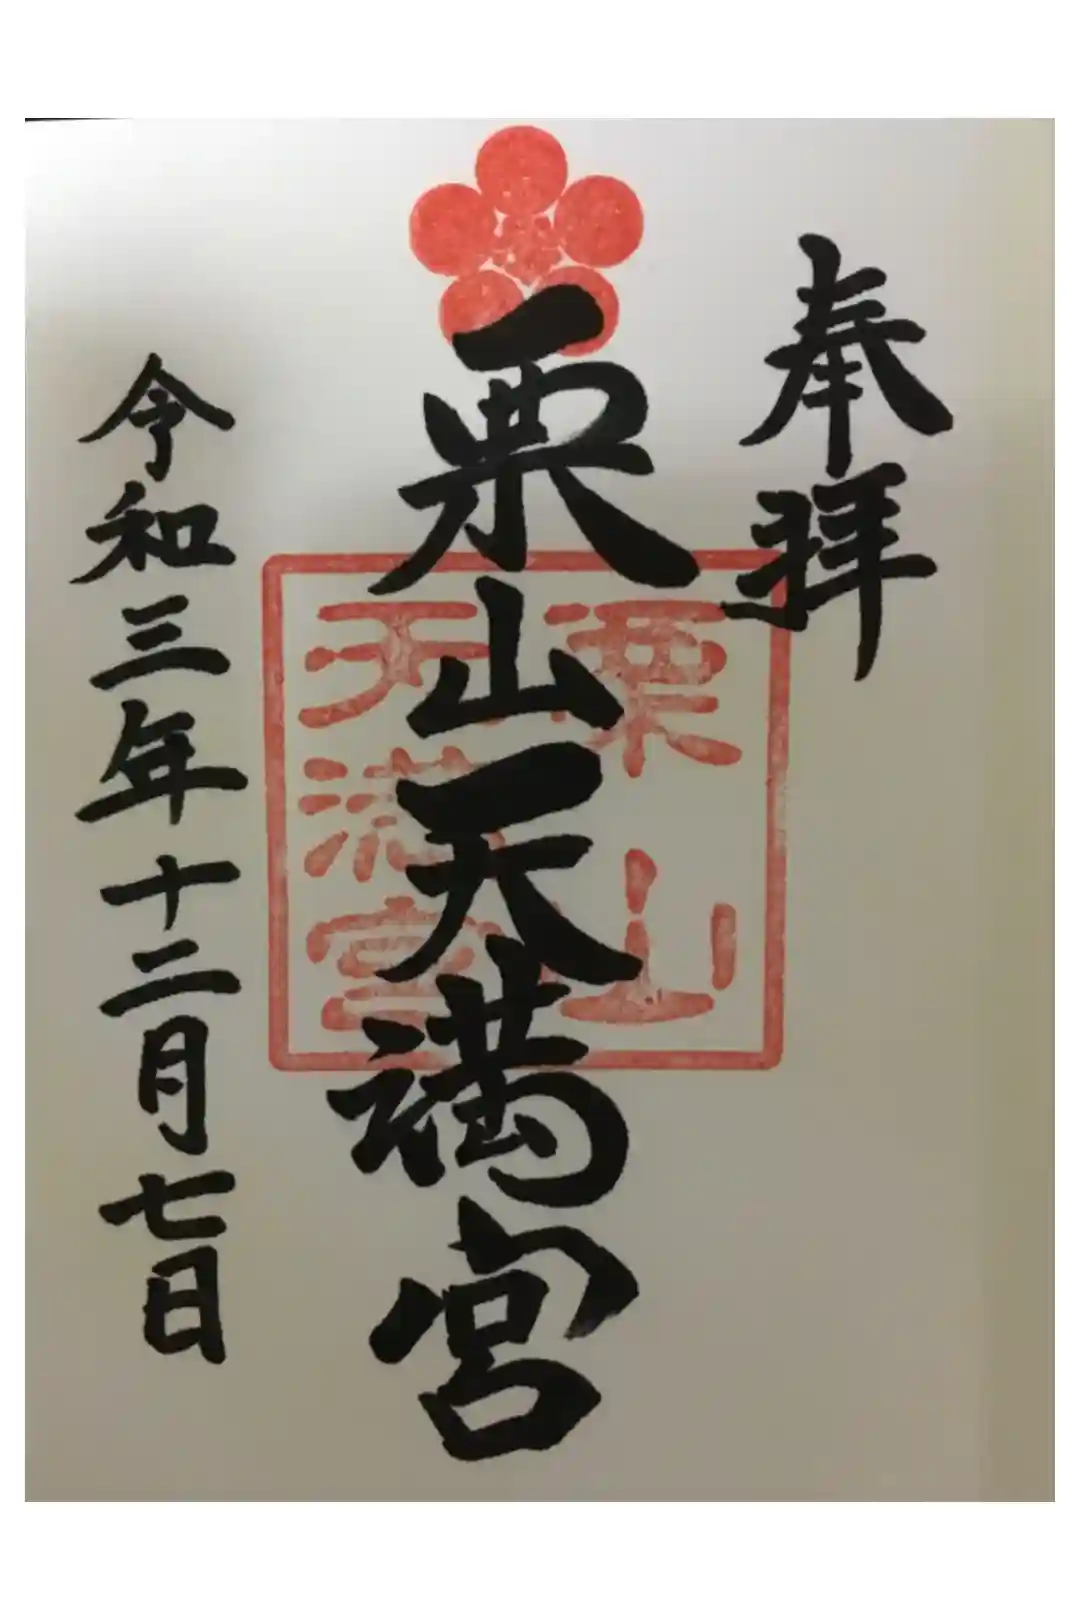 奉拝
栗山天満宮
令和三年十二月七日
栗山
天満宮